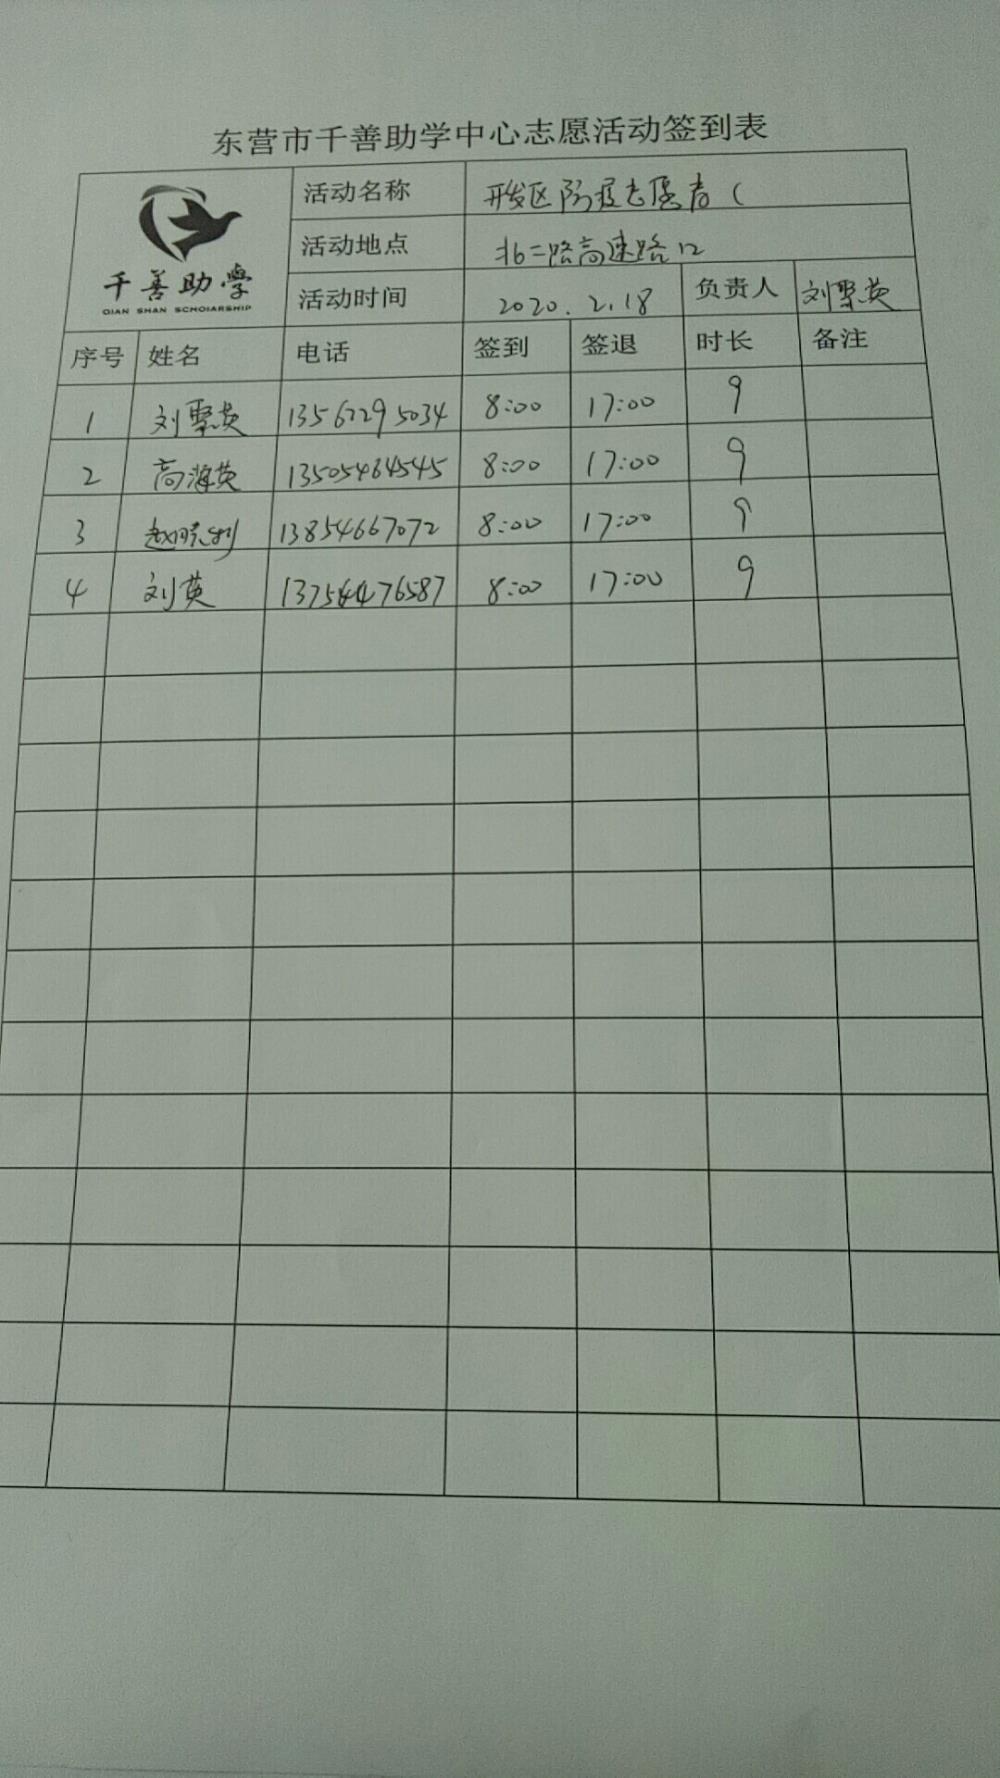 东营市千善助学中心志愿活动签到表
千善助学
QIAN SHAN SCHOIARSHIP
活动名称 开发区防疫志愿者（
活动地点 北二路高速路口
活动时间 2020.2.18 负责人 刘聚英
序号 姓名 电话 签到 签退 时长 备注
1 刘聚英 13562295034 8:00 17:00 9
2 高海英 13505464545 8:00 17:00 9
3 赵晓利 13854667072 8:00 17:00 9
4 刘英 8:00 17:00 9